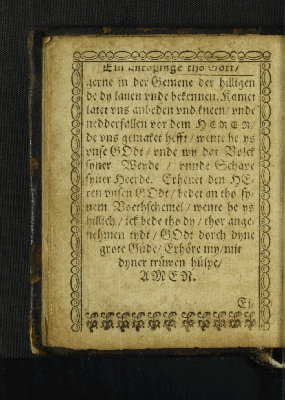 Ein anropinge tho Gott/
gerne in der Gemene der hilligen
de dy lauen vnde bekennen. Kamet
latet vns anbeden vnd kneen/ vnde
nedderfallen vor dem HEREN/
de vns gemaket hefft/ wente he ys
vnse GOdt/ vnde wy dat Volck
syner Weyde / vnnde Schape
syner Heerde. Erheuet den HE-
ren vnsen GOdt/ bedet an tho sy-
nem Voethschemel/ wente he ys
hillich/ ick bede tho dy / thor ange-
nehmen tydt/ GOdt dorch dyne
grote Güde/ Erhöre my/ mit
dyner trüwen hülpe/
AMEN.
Ei-